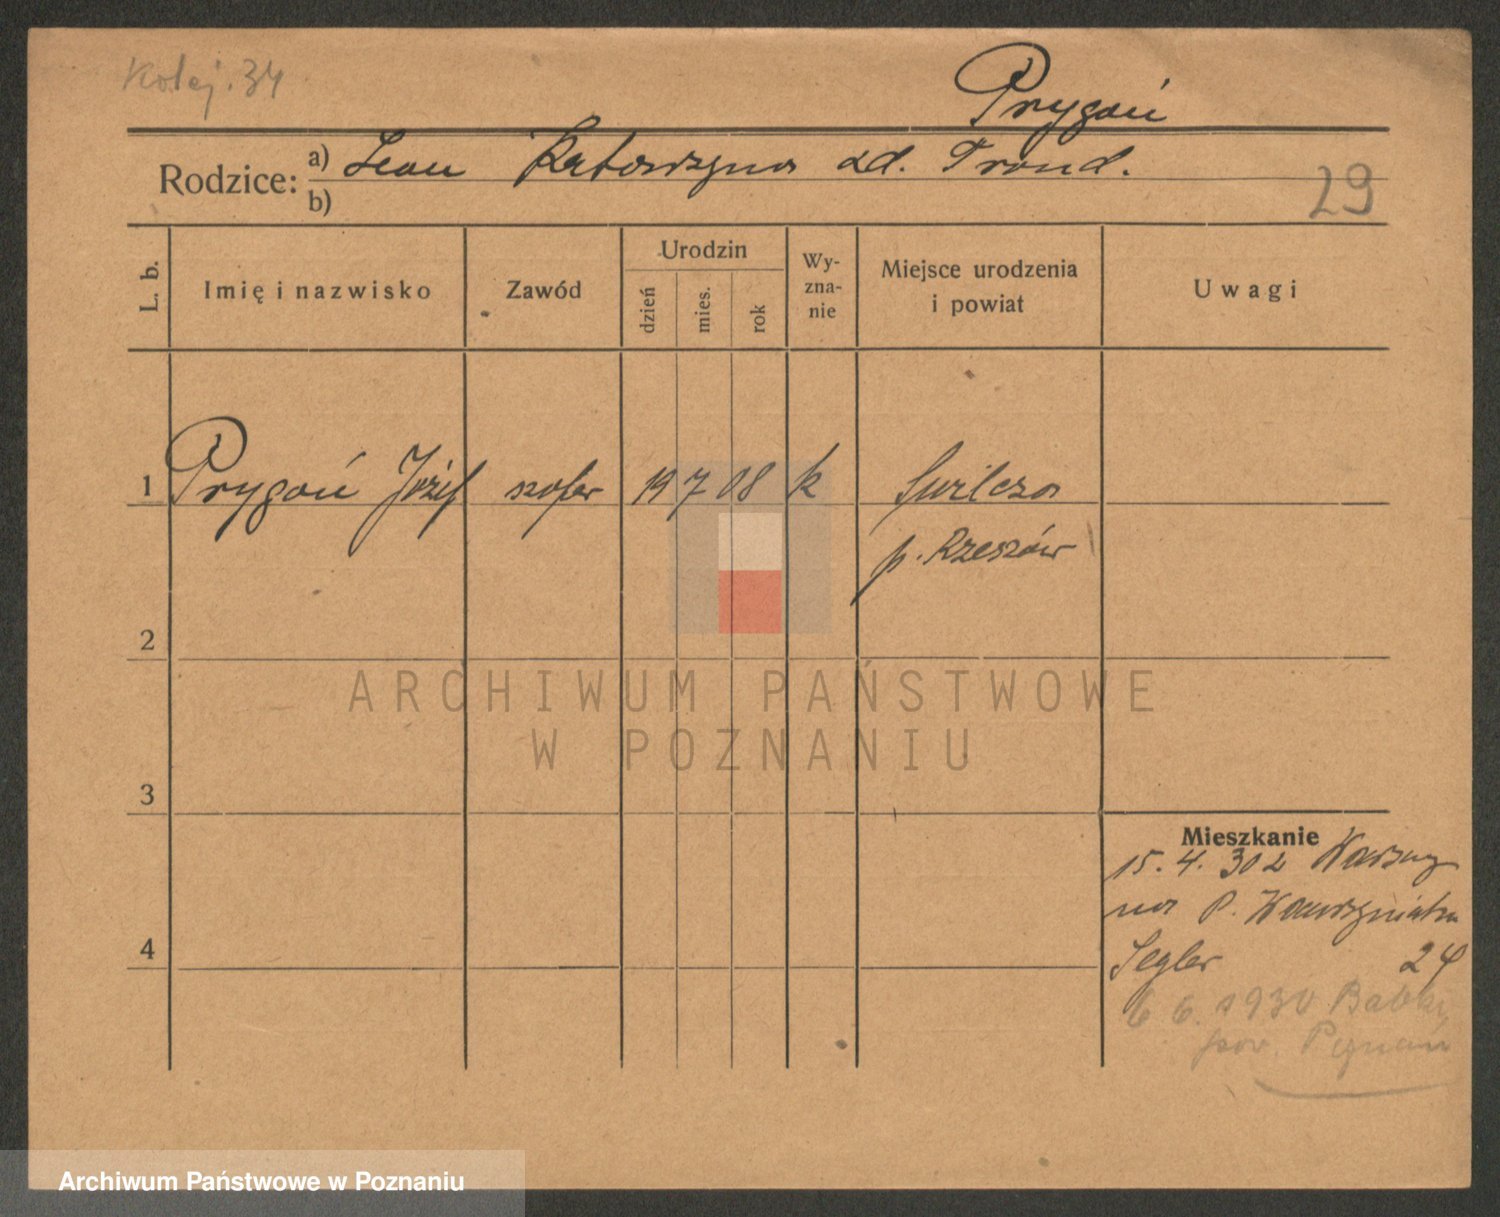 Kolej. 34
Prygoń
Rodzice: a) Leon Katarzyna zd. Trond.
b)
29
L. b.
Imię i nazwisko
Zawód
Urodzin
dzień
mies.
rok
Wy-
zna-
nie
Miejsce urodzenia
i powiat
Uwagi
1 Prygoń Józef szofer 19 7 08 k Świlcza
p. Rzeszów
2
3
4
Mieszkanie
15. 4. 30 z Warszawy
P.
24
6 6. 1930 Babki
pow. Poznań
ARCHIWUM PAŃSTWOWE
W POZNANIU
Archiwum Państwowe w Poznaniu